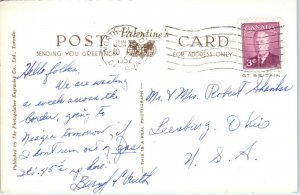 POST Valentine's CARD
SENDING YOU GREETINGS FOR ADDRESS ONLY
JUN
10
1952
CANADA
3
Published by The Photogelatine Engraving Co., Ltd., Toronto.
THIS IS A REAL PHOTOGRAPH
GT BRITAIN
Hello folks,
We are wasting
a week across the
border, going to
Niagra tomorrow if
I don't run out of gas.
It's 45¢ up here.
Beryl & Ruth
Mr. & Mrs. Robert
Leesburg, Ohio
U. S. A.